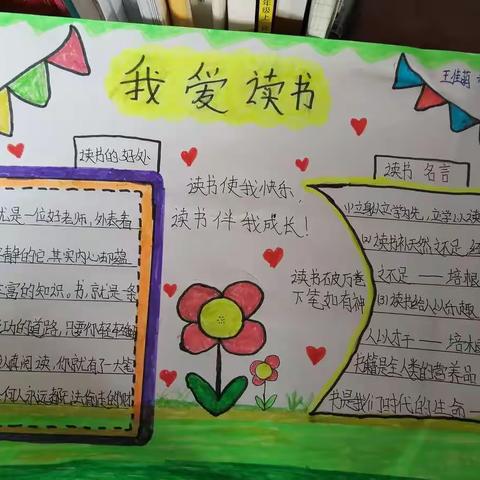 我爱读书
王佳萌
读书的好处
就是一位好老师,外表看
静的它,其实内心却蕴
富的知识。书,就是一条
功的道路,只要你轻轻翻
真阅读,你就有了一大笔
何人永远都无法偷走的财
读书使我快乐,
读书伴我成长!
读书破万卷
下笔如有神
读书 名言
(1)立身以立学为先,立学以读
(2)读书补天然之不足,经
之不足——培根
(3)读书给人以乐趣
人以才干——培根
书籍是全人类的营养品
书是我们时代的生命——